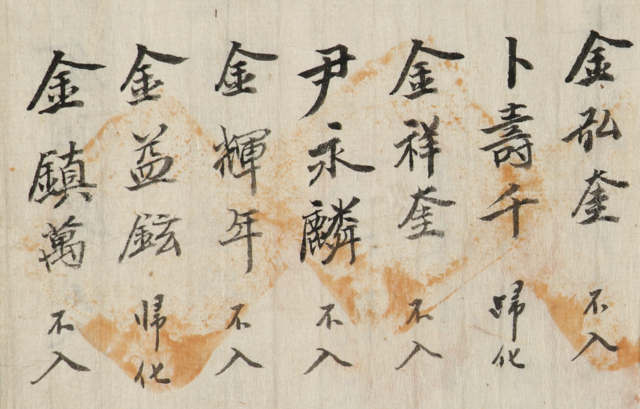 金弘奎 不入
卜壽千 歸化
金祥奎 不入
尹永麟 不入
金輝年 不入
金益鉉 帰化
金鎮萬 不入